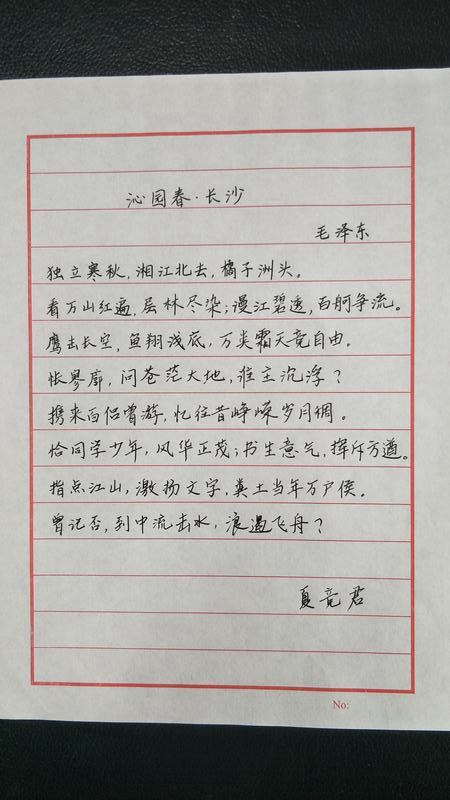 沁园春·长沙
毛泽东
独立寒秋,湘江北去,橘子洲头。
看万山红遍,层林尽染;漫江碧透,百舸争流。
鹰击长空,鱼翔浅底,万类霜天竞自由。
怅寥廓,问苍茫大地,谁主沉浮?
携来百侣曾游,忆往昔峥嵘岁月稠。
恰同学少年,风华正茂;书生意气,挥斥方遒。
指点江山,激扬文字,粪土当年万户侯。
曾记否,到中流击水,浪遏飞舟?
夏竞君
No: